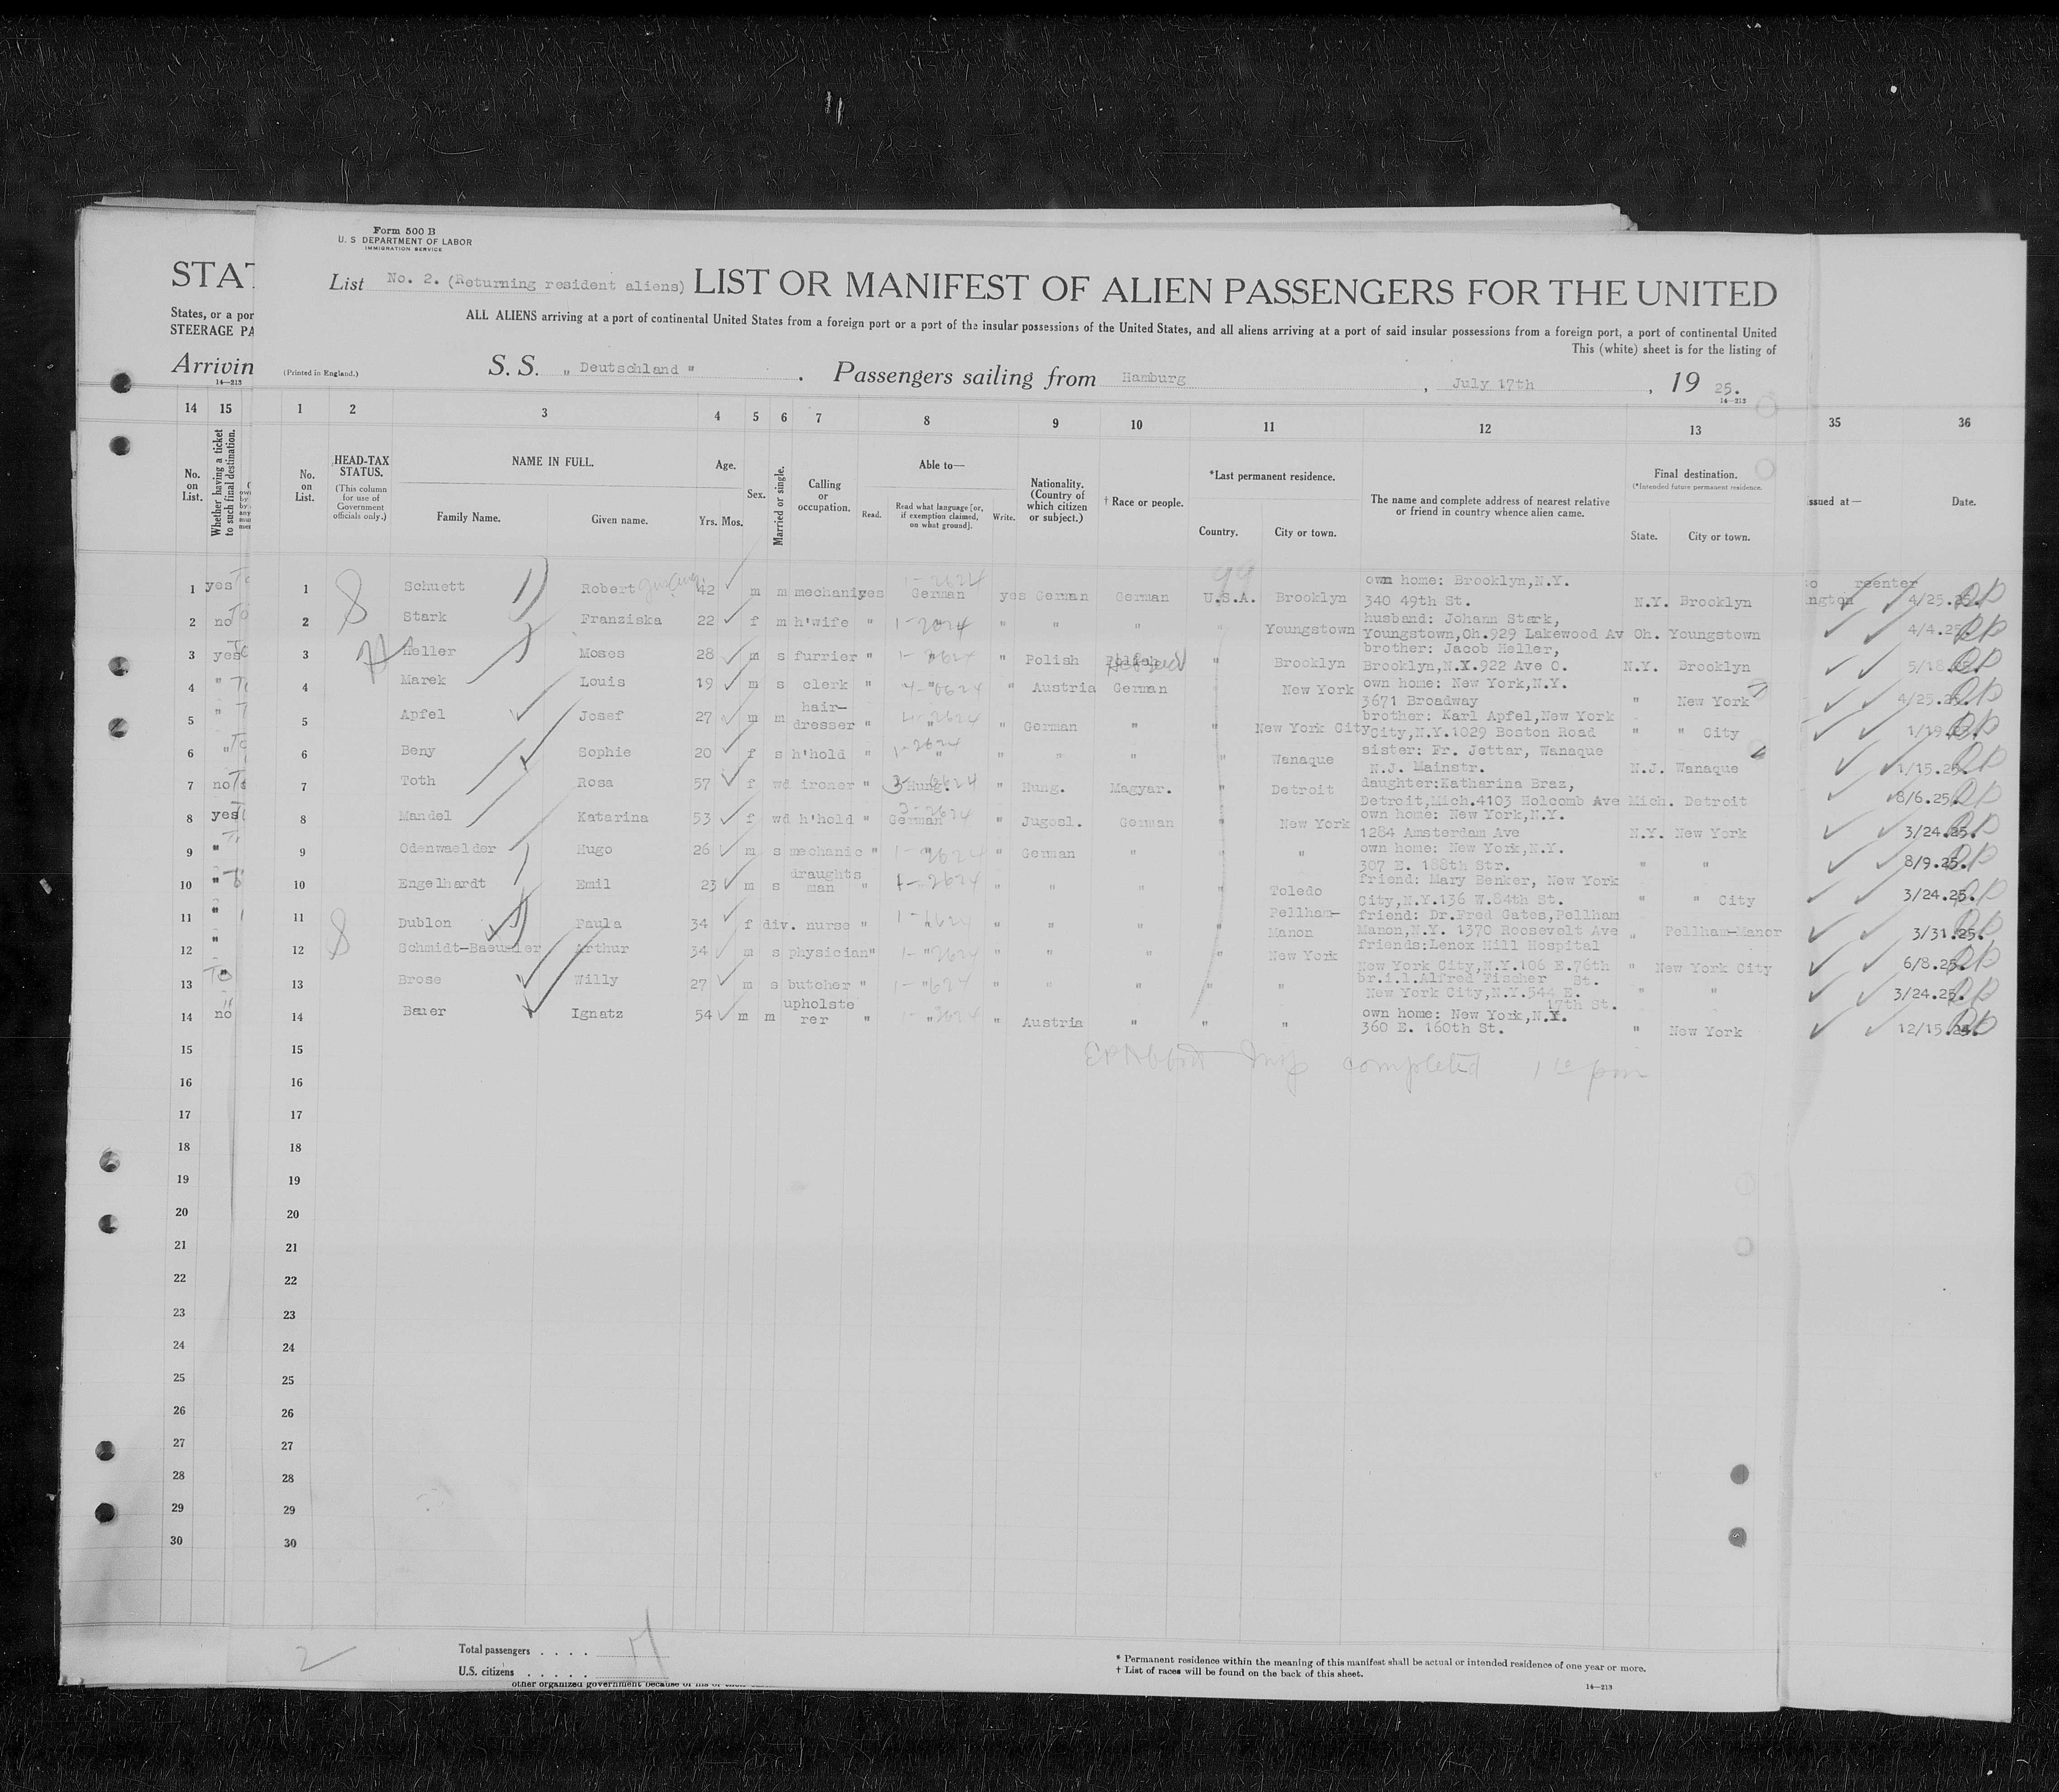 Form 500 B
U. S DEPARTMENT OF LABOR
IMMIGRATION SERVICE
STAT
List No. 2. (Returning resident aliens) LIST OR MANIFEST OF ALIEN PASSENGERS FOR THE UNITED
States, or a por
STEERAGE PA
ALL ALIENS arriving at a port of continental United States from a foreign port or a port of the insular possessions of the United States, and all aliens arriving at a port of said insular possessions from a foreign port, a port of continental United
This (white) sheet is for the listing of
Arrivin
14—213
(Printed in England.)
S. S. „ Deutschland " . Passengers sailing from Hamburg , July 17th , 19 25.
14—213
14 15 1 2 3 4 5 6 7 8 9 10 11 12 13 35 36
No. on List.
Whether having a ticket to such final destination.
No. on List.
HEAD-TAX STATUS.
(This column for use of Government officials only.)
NAME IN FULL.
Family Name. Given name.
Age.
Yrs. Mos.
Sex.
Married or single.
Calling or occupation.
Able to—
Read. Read what language [or, if exemption claimed, on what ground]. Write.
Nationality. (Country of which citizen or subject.)
† Race or people.
*Last permanent residence.
Country. City or town.
The name and complete address of nearest relative or friend in country whence alien came.
Final destination.
(*Intended future permanent residence.
State. City or town.
issued at— Date.
1 yes 1 Schuett Robert 42 m m mechanic yes German yes German German U.S.A. Brooklyn own home: Brooklyn,N.Y.
340 49th St. N.Y. Brooklyn reenter ngton 4/25.25.
2 no 2 Stark Franziska 22 f m h'wife " " " " " Youngstown husband: Johann Stark,
Youngstown,Oh.929 Lakewood Av Oh. Youngstown 4/4.25.
3 yes 3 Heller Moses 28 m s furrier " " " Polish Hebrew " Brooklyn brother: Jacob Heller,
Brooklyn,N.Y.922 Ave O. N.Y. Brooklyn 5/18.25.
4 " 4 Marek Louis 19 m s clerk " " " Austria German New York own home: New York,N.Y.
3671 Broadway " New York 4/25.25.
5 " 5 Apfel Josef 27 m m hair-
dresser " " " German " " New York City brother: Karl Apfel,New York
City,N.Y.1029 Boston Road " " City 1/19.
6 " 6 Beny Sophie 20 f s h'hold " " " " " Wanaque sister: Fr. Jettar, Wanaque
N.J. Mainstr. N.J. Wanaque 1/15.25.
7 no 7 Toth Rosa 57 f wd ironer " Hung. " Hung. Magyar. " Detroit daughter:Katharina Braz,
Detroit,Mich.4103 Holcomb Ave Mich. Detroit 8/6.25.
8 yes 8 Mandel Katarina 53 f wd h'hold " German " Jugosl. German " New York own home: New York,N.Y.
1284 Amsterdam Ave N.Y. New York 3/24.25.
9 " 9 Odenwaelder Hugo 26 m s mechanic " " " German " " " own home: New York,N.Y.
307 E. 188th Str. " " 8/9.25.
10 " 10 Engelhardt Emil 23 m s draughts
man " " " " " Toledo friend: Mary Benker, New York
City,N.Y.136 W.84th St. " " City 3/24.25.
11 " 11 Dublon Paula 34 f div. nurse " " " " " " Pellham-
Manon friend: Dr.Fred Gates,Pellham
Manon,N.Y. 1370 Roosevelt Ave " Pellham-Manor 3/31.25.
12 " 12 Schmidt-Baeumler Arthur 34 m s physician " " " " " " New York friends:Lenox Hill Hospital
New York City,N.Y.106 E.76th St. " New York City 6/8.25.
13 " 13 Brose Willy 27 m s butcher " " " " " " " br.i.l.Alfred Fischer
New York City,N.Y.544 E.
17th St. " " 3/24.25.
14 no 14 Bauer Ignatz 54 m m upholste
rer " " " Austria " " " own home: New York,N.Y.
360 E. 160th St. " New York 12/15.24.
15 15
completed
16 16
17 17
18 18
19 19
20 20
21 21
22 22
23 23
24 24
25 25
26 26
27 27
28 28
29 29
30 30
2
Total passengers . . . .
U.S. citizens . . . . .
* Permanent residence within the meaning of this manifest shall be actual or intended residence of one year or more.
† List of races will be found on the back of this sheet.
14—213